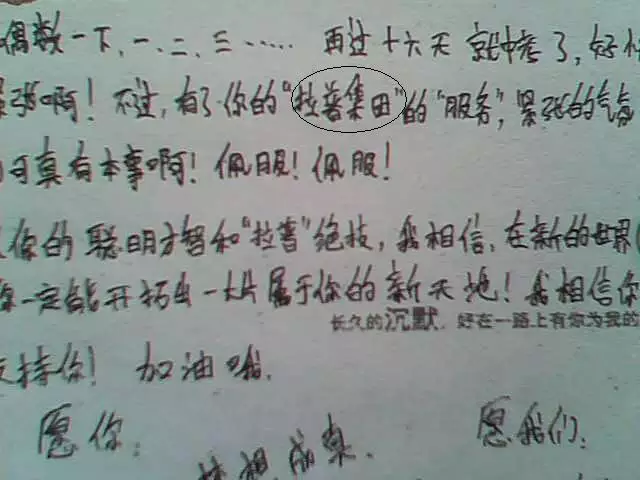 偶数一下、一、二、三…… 再过十六天就中考了,好
张啊!不过,有了你的“拉普集团”的“服务”,紧张的气氛
可真有本事啊!佩服!佩服!
你的聪明才智和“拉普”绝技,我相信,在新的世界
你一定能开拓出一大片属于你的新天地!我相信你
长久的沉默,好在一路上有你为我的
支持你!加油哦.
愿你: 愿我们:
梦想成真.